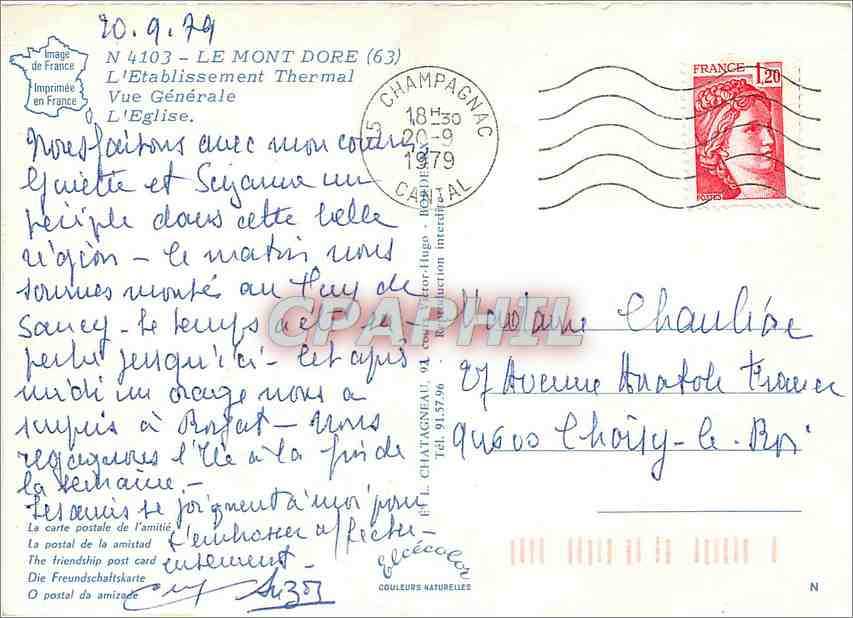 20.9.79
Image
de France
Imprimée
en France
N 4103 - LE MONT DORE (63)
L'Etablissement Thermal
Vue Générale
L'Eglise.
Nous faisons avec mon cousin,
Guiette et Suzanne un
périple dans cette belle
région - le matin nous
sommes montés au Puy de
Sancy - le temps a été su-
perbe jusqu'ici - Cet après
midi un orage nous a
surpris à Royat - Nous
regagnons l'Ile à la fin de
la semaine -
Les amis se joignent à moi pour
t'embrasser affectu-
eusement -
Suzon
La carte postale de l'amitié
La postal de la amistad
The friendship post card
Die Freundschaftskarte
O postal da amizade
15 CHAMPAGNAC
18H30
20-9
1979
CANTAL
FRANCE
1,20
POSTES
L. CHATAGNEAU, 91, cours Victor-Hugo - BORDEAUX
Tél. 91.57.96 - Reproduction interdite
CPAPHIL
Madame Chaulière
27 Avenue Anatole France
94600 Choisy-le-Roi
Elcécolor
COULEURS NATURELLES
N